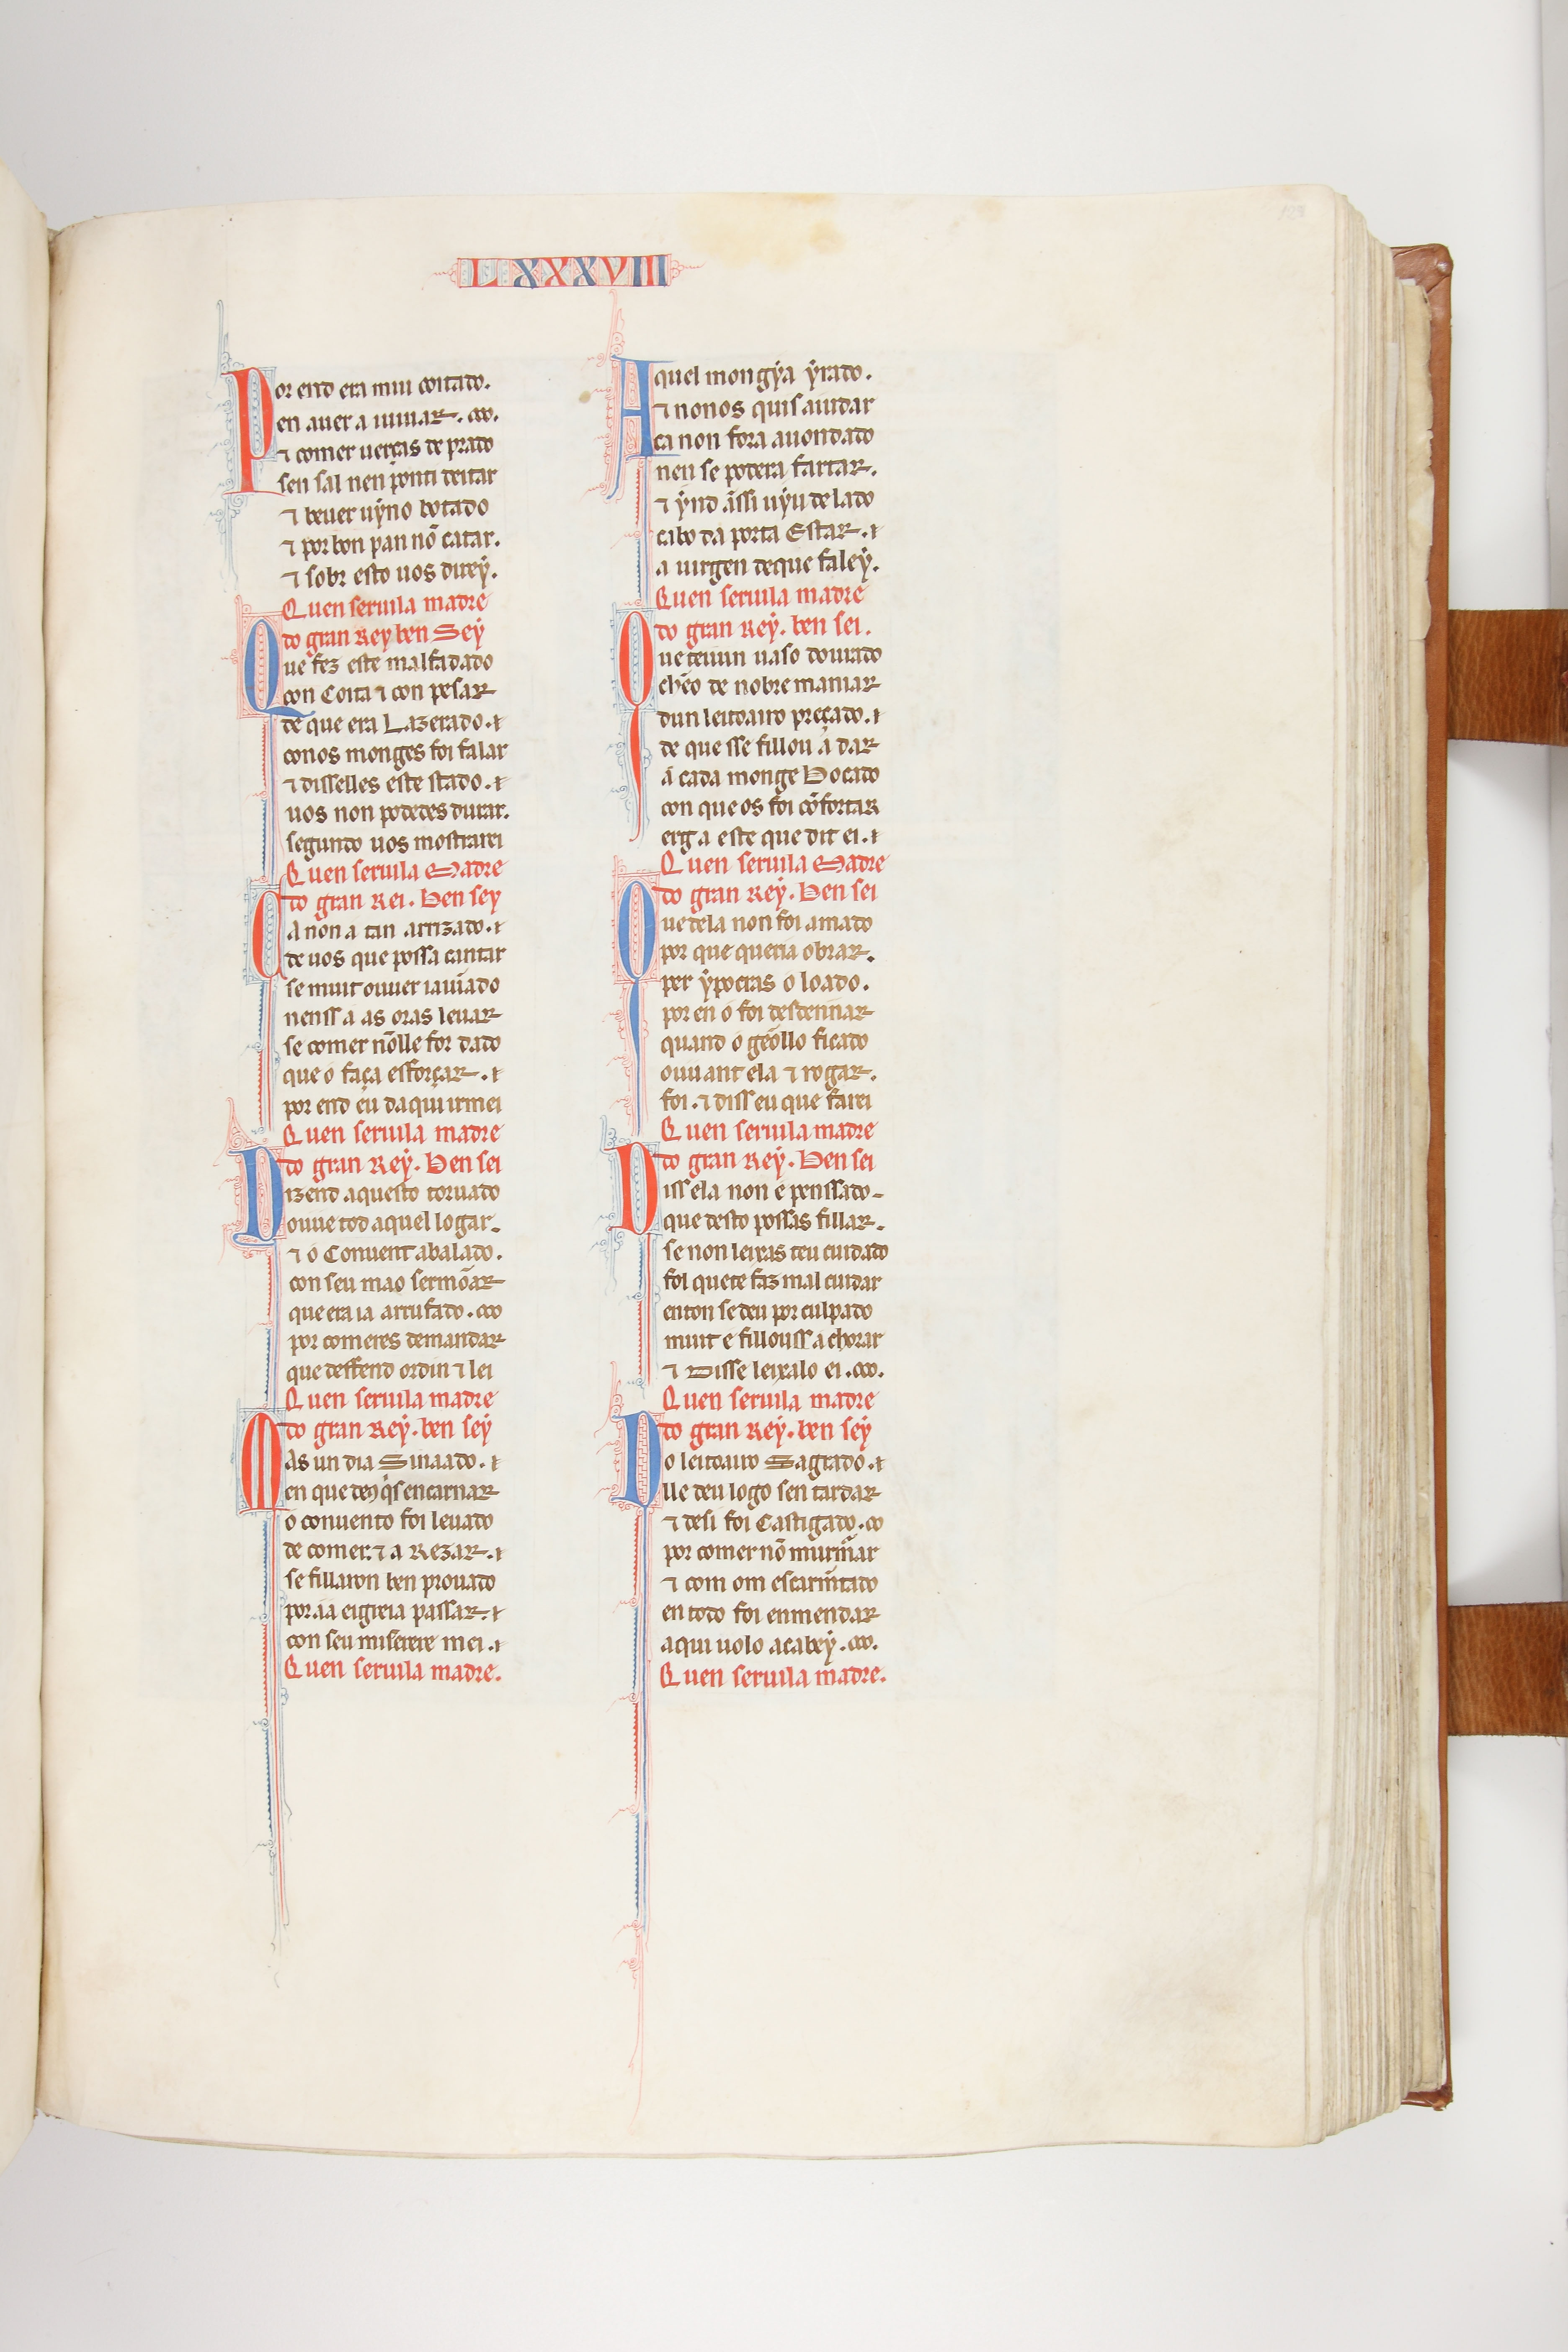 LXXXVIII
Por end era mui coitado.
en auer a iuuiar.
⁊ comer uerças de prado
sen sal nen ponti deitar
⁊ beuer uỹno botado
⁊ por bon pan nõ catar.
⁊ sobr esto uos direẏ.
Quen seruila madre
do gran Rey ben Seẏ
Que fez este malfadado
con Coita ⁊ con pesar
de que era Lazerado.
conos monges foi falar
⁊ disselles este stado.
uos non podedes durar.
segundo uos mostrarei
Quen seruila Madre
do gran Rei. Ben sey
Ca non a tan arrizado.
de uos que possa cantar
se muit ouuer iaiũado
nenss a as oras leuar
se comer nõlle for dado
que o faça esforçar.
por end eu daqui irmei
Quen seruila madre
do gran Reẏ. Ben sei
Dizend aquesto toruado
ouue tod aquel logar.
⁊ o Conuent abalado.
con seu mao sermõar
que era ia arrufado.
por comeres demandar
que deffend ordin ⁊ lei
Quen seruila madre
do gran Reẏ. ben sey
Mas un dia Sinaado.
en que deus q̇s encarnar
o conuento foi leuado
de comer. ⁊ a Rezar.
se fillaron ben prouado
por. ia eigreia passar.
con seu miserere mei.
Quen seruila madre.
Aquel mongẏa ẏrado.
⁊ nonos quis aiudar
ca non fora auondado
nen se podera fartar.
⁊ ẏnd ãssi uẏu de lado
cabo da porta Estar.
a uirgen de que faleẏ.
Quen seruila madre
do gran Reẏ. ben sei.
Que teuun uaso dourado
chẽo de nobre maniar
dun leitoairo preçado.
de que sse fillou a dar
a cada monge Bocado
con que os foi cõfortar
erg a este que dit ei.
Quen seruila Madre
do gran Reẏ. Ben sei
Que dela non foi amado
por que queria obrar.
per ẏpocras o loado.
por en o foi desdennar
quand o geõllo ficado
ouu ant ela ⁊ rogar.
foi. ⁊ diss eu que farei
Quen seruila madre
do gran Reẏ. Ben sei
Diss ela non e penssado
que desto possas fillar.
se non leixas teu cuidado
fol que te faz mal cuidar
enton se deu por culpado
muit e fillouss a chorar
⁊ Disse leixalo ei.
Quen seruila madre
do gran Reẏ. ben seẏ
Do leitoairo Sagrado.
lle deu logo sen tardar
⁊ desi foi Castigado.
por comer nõ murmar
⁊ com om escarmtado
en todo foi enmendar
aqui uolo acabeẏ.
Quen seruila madre.